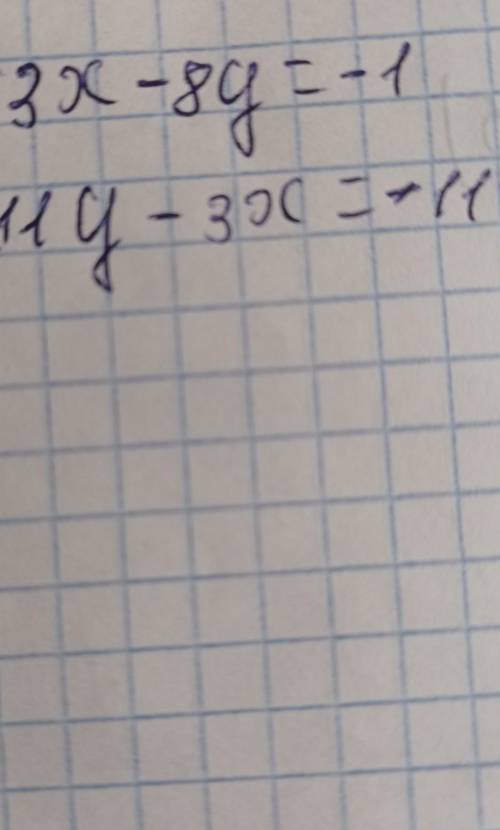 3x - 8y = -1
11y - 3x = -11